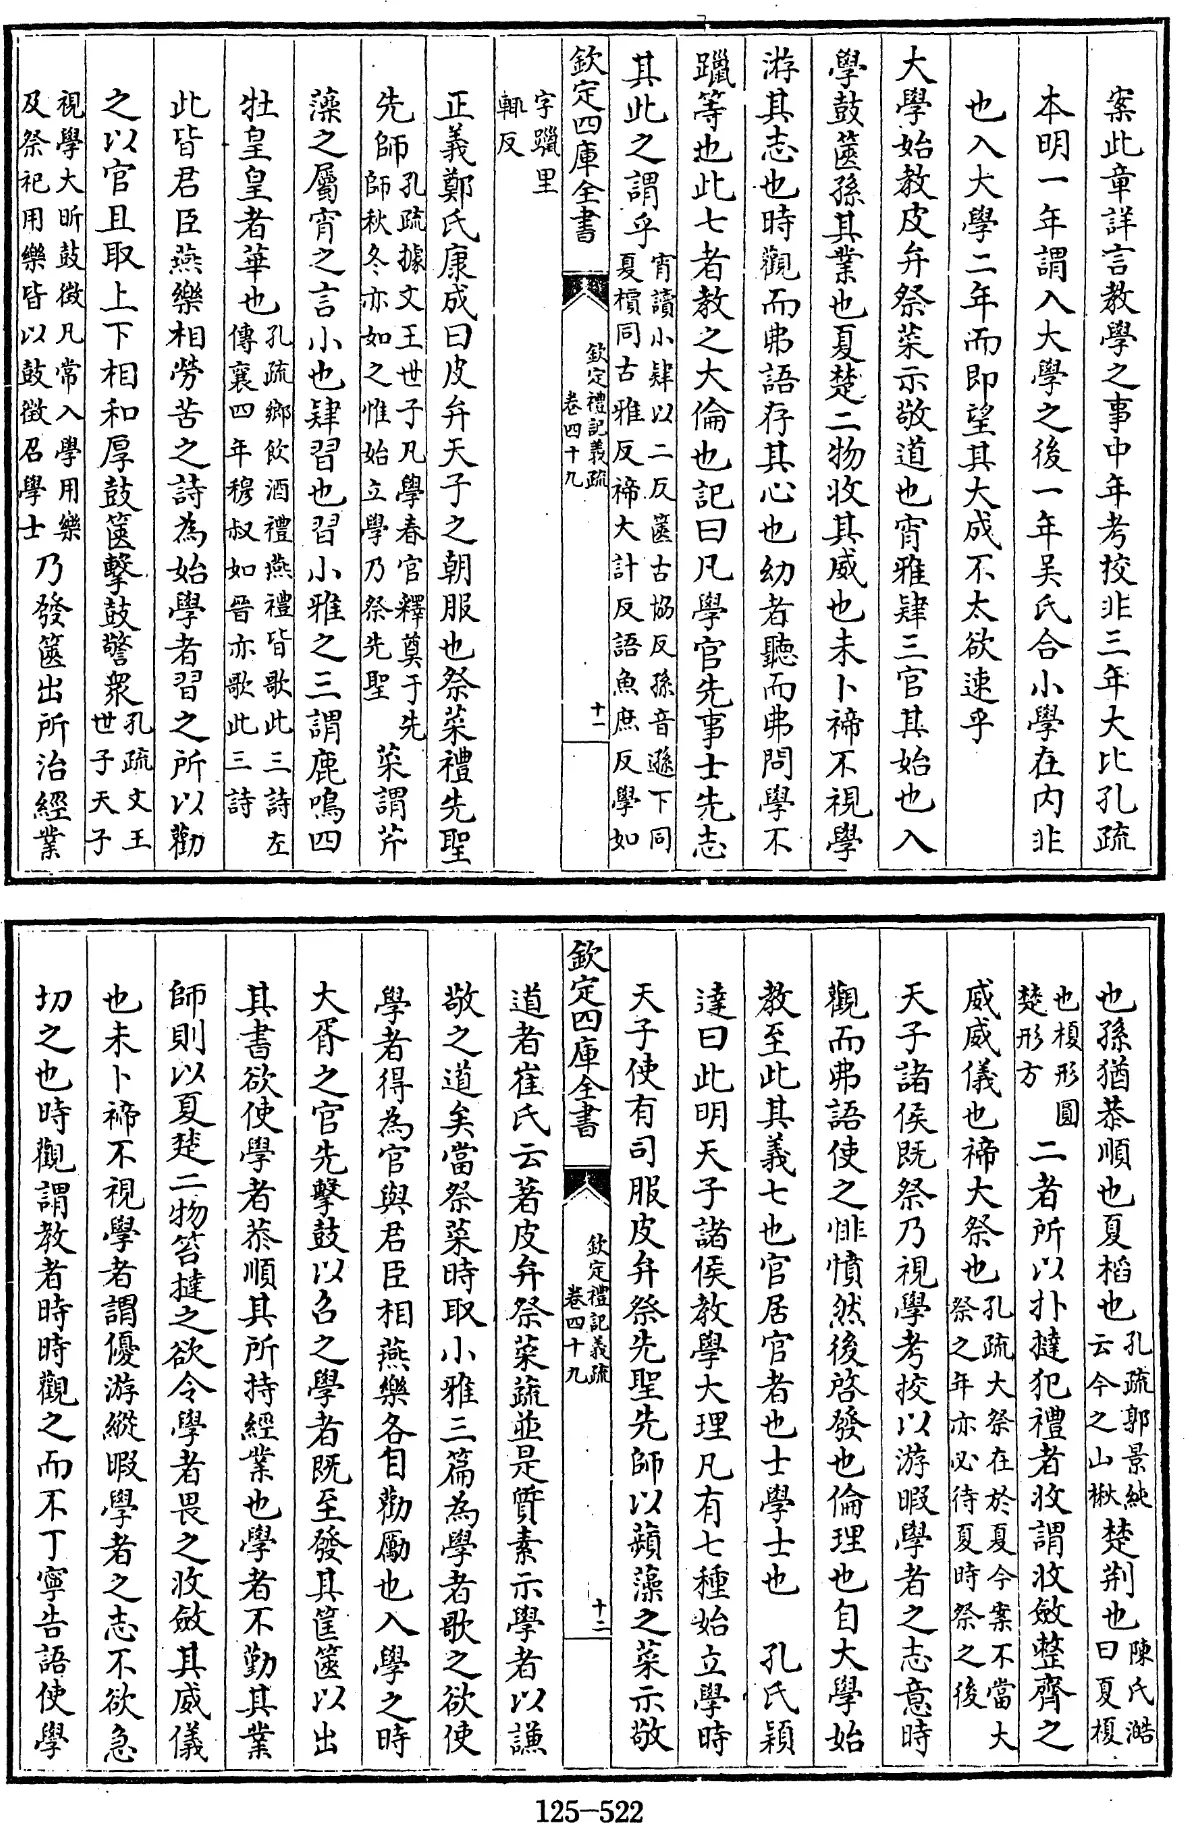 案此章詳言教學之事中年考挍非三年大比孔疏
本明一年謂入大學之後一年吳氏合小學在内非
也入大學二年而即望其大成不太欲速乎
大學始教皮弁祭菜示敬道也宵雅肄三官其始也入
學鼓篋孫其業也夏楚二物收其威也未卜禘不視學
游其志也時觀而弗語存其心也幼者聽而弗問學不
躐等也此七者教之大倫也記曰凡學官先事士先志
其此之謂乎宵讀小肄以二反篋古協反孫音遜下同
夏榎同古雅反禘大計反語魚庶反學如
欽定四庫全書 欽定禮記義疏 卷四十九 十一
字躐里
輒反
正義鄭氏康成曰皮弁天子之朝服也祭菜禮先聖
先師孔疏據文王世子凡學春官釋奠于先
師秋冬亦如之惟始立學乃祭先聖 菜謂芹
藻之屬宵之言小也肄習也習小雅之三謂鹿鳴四
牡皇皇者華也孔疏鄉飲酒禮燕禮皆歌此三詩左
傳襄四年穆叔如晉亦歌此三詩
此皆君臣燕樂相勞苦之詩為始學者習之所以勸
之以官且取上下相和厚鼓篋擊鼓警衆孔疏文王
世子天子
視學大昕鼓徵凡常入學用樂
及祭祀用樂皆以鼓徵召學士乃發篋出所治經業
也孫猶恭順也夏稻也孔疏郭景純
云今之山楸楚荆也陳氏澔
曰夏榎
也榎形圓
楚形方 二者所以扑撻犯禮者收謂收斂整齊之
威威儀也禘大祭也孔疏大祭在於夏今案不當大
祭之年亦必待夏時祭之後
天子諸侯既祭乃視學考挍以游暇學者之志意時
觀而弗語使之悱憤然後啓發也倫理也自大學始
教至此其義七也官居官者也士學士也 孔氏穎
達曰此明天子諸侯教學大理凡有七種始立學時
天子使有司服皮弁祭先聖先師以蘋藻之菜示敬
欽定四庫全書 欽定禮記義疏 卷四十九 十二
道者崔氏云著皮弁祭菜蔬並是質素示學者以謙
敬之道矣當祭菜時取小雅三篇為學者歌之欲使
學者得為官與君臣相燕樂各自勸勵也入學之時
大胥之官先擊鼓以召之學者既至發其筐篋以出
其書欲使學者恭順其所持經業也學者不勤其業
師則以夏楚二物笞撻之欲令學者畏之收斂其威儀
也未卜禘不視學者謂優游縱暇學者之志不欲急
切之也時觀謂教者時時觀之而不丁寧告語使學
125-522